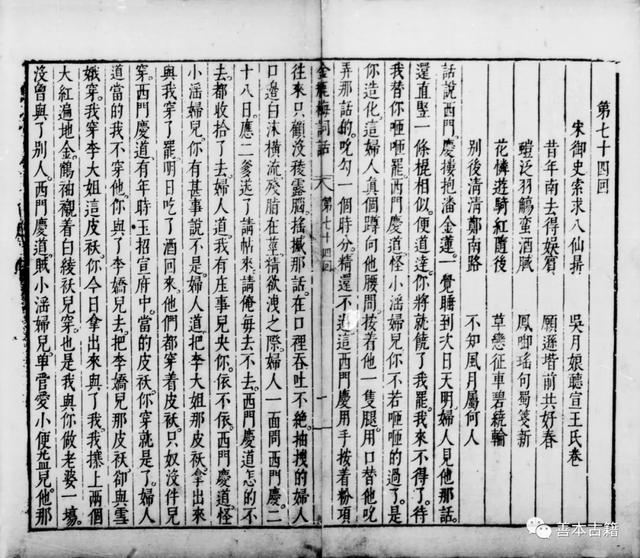 第七十四回
宋御史索求八仙鼎　吳月娘聽宣王氏卷
昔年南去得娛賓　願遜堦前共好春
蟻泛羽觴蠻酒膩　鳳啣瑤句蜀箋新
花憐遊騎紅隨後　草戀征車碧繞輪
別後清清鄭南路　不知風月屬何人
話說西門慶摟抱潘金蓮一覺睡到次日天明婦人見他那話
還直竪一條棍相似便道達達你將就饒了我罷我來不得了待
我替你咂咂罷西門慶道怪小淫婦兒你不若咂咂的過了是
你造化這婦人真個蹲向他腰間按着他一隻腿用口替他吮
弄那話的吮勾一個時分精還不過這西門慶用手按着粉項
金瓶梅詞話　第七十四回　一
往來只顧沒稜露腦搖撼那話在口裡吞吐不絕抽拽的婦人
口邊白沫橫流殘脂在莖精欲洩之際婦人一面問西門慶二
十八日應二爹送了請帖來請俺每去不去西門慶道怎的不
去都收拾了去婦人道我有庄事兒央你依不依西門慶道怪
小淫婦兒你有甚事說不是婦人道把李大姐那皮袄拿出來
與我穿了罷明日吃了酒回來他們都穿着皮袄只奴沒件兒
穿西門慶道有年時王招宣府中當的皮袄你穿就是了婦人
道當的我不穿他你與了李嬌兒去把李嬌兒那皮袄卻與雪
娥穿我穿李大姐這皮袄你今日拿出來與了我我上兩個
大紅遍地金鶴袖襯着白綾袄兒穿也是我與你做老婆一場
沒曾與了別人西門慶道賊小淫婦兒單管愛小便益兒他那
善本古籍